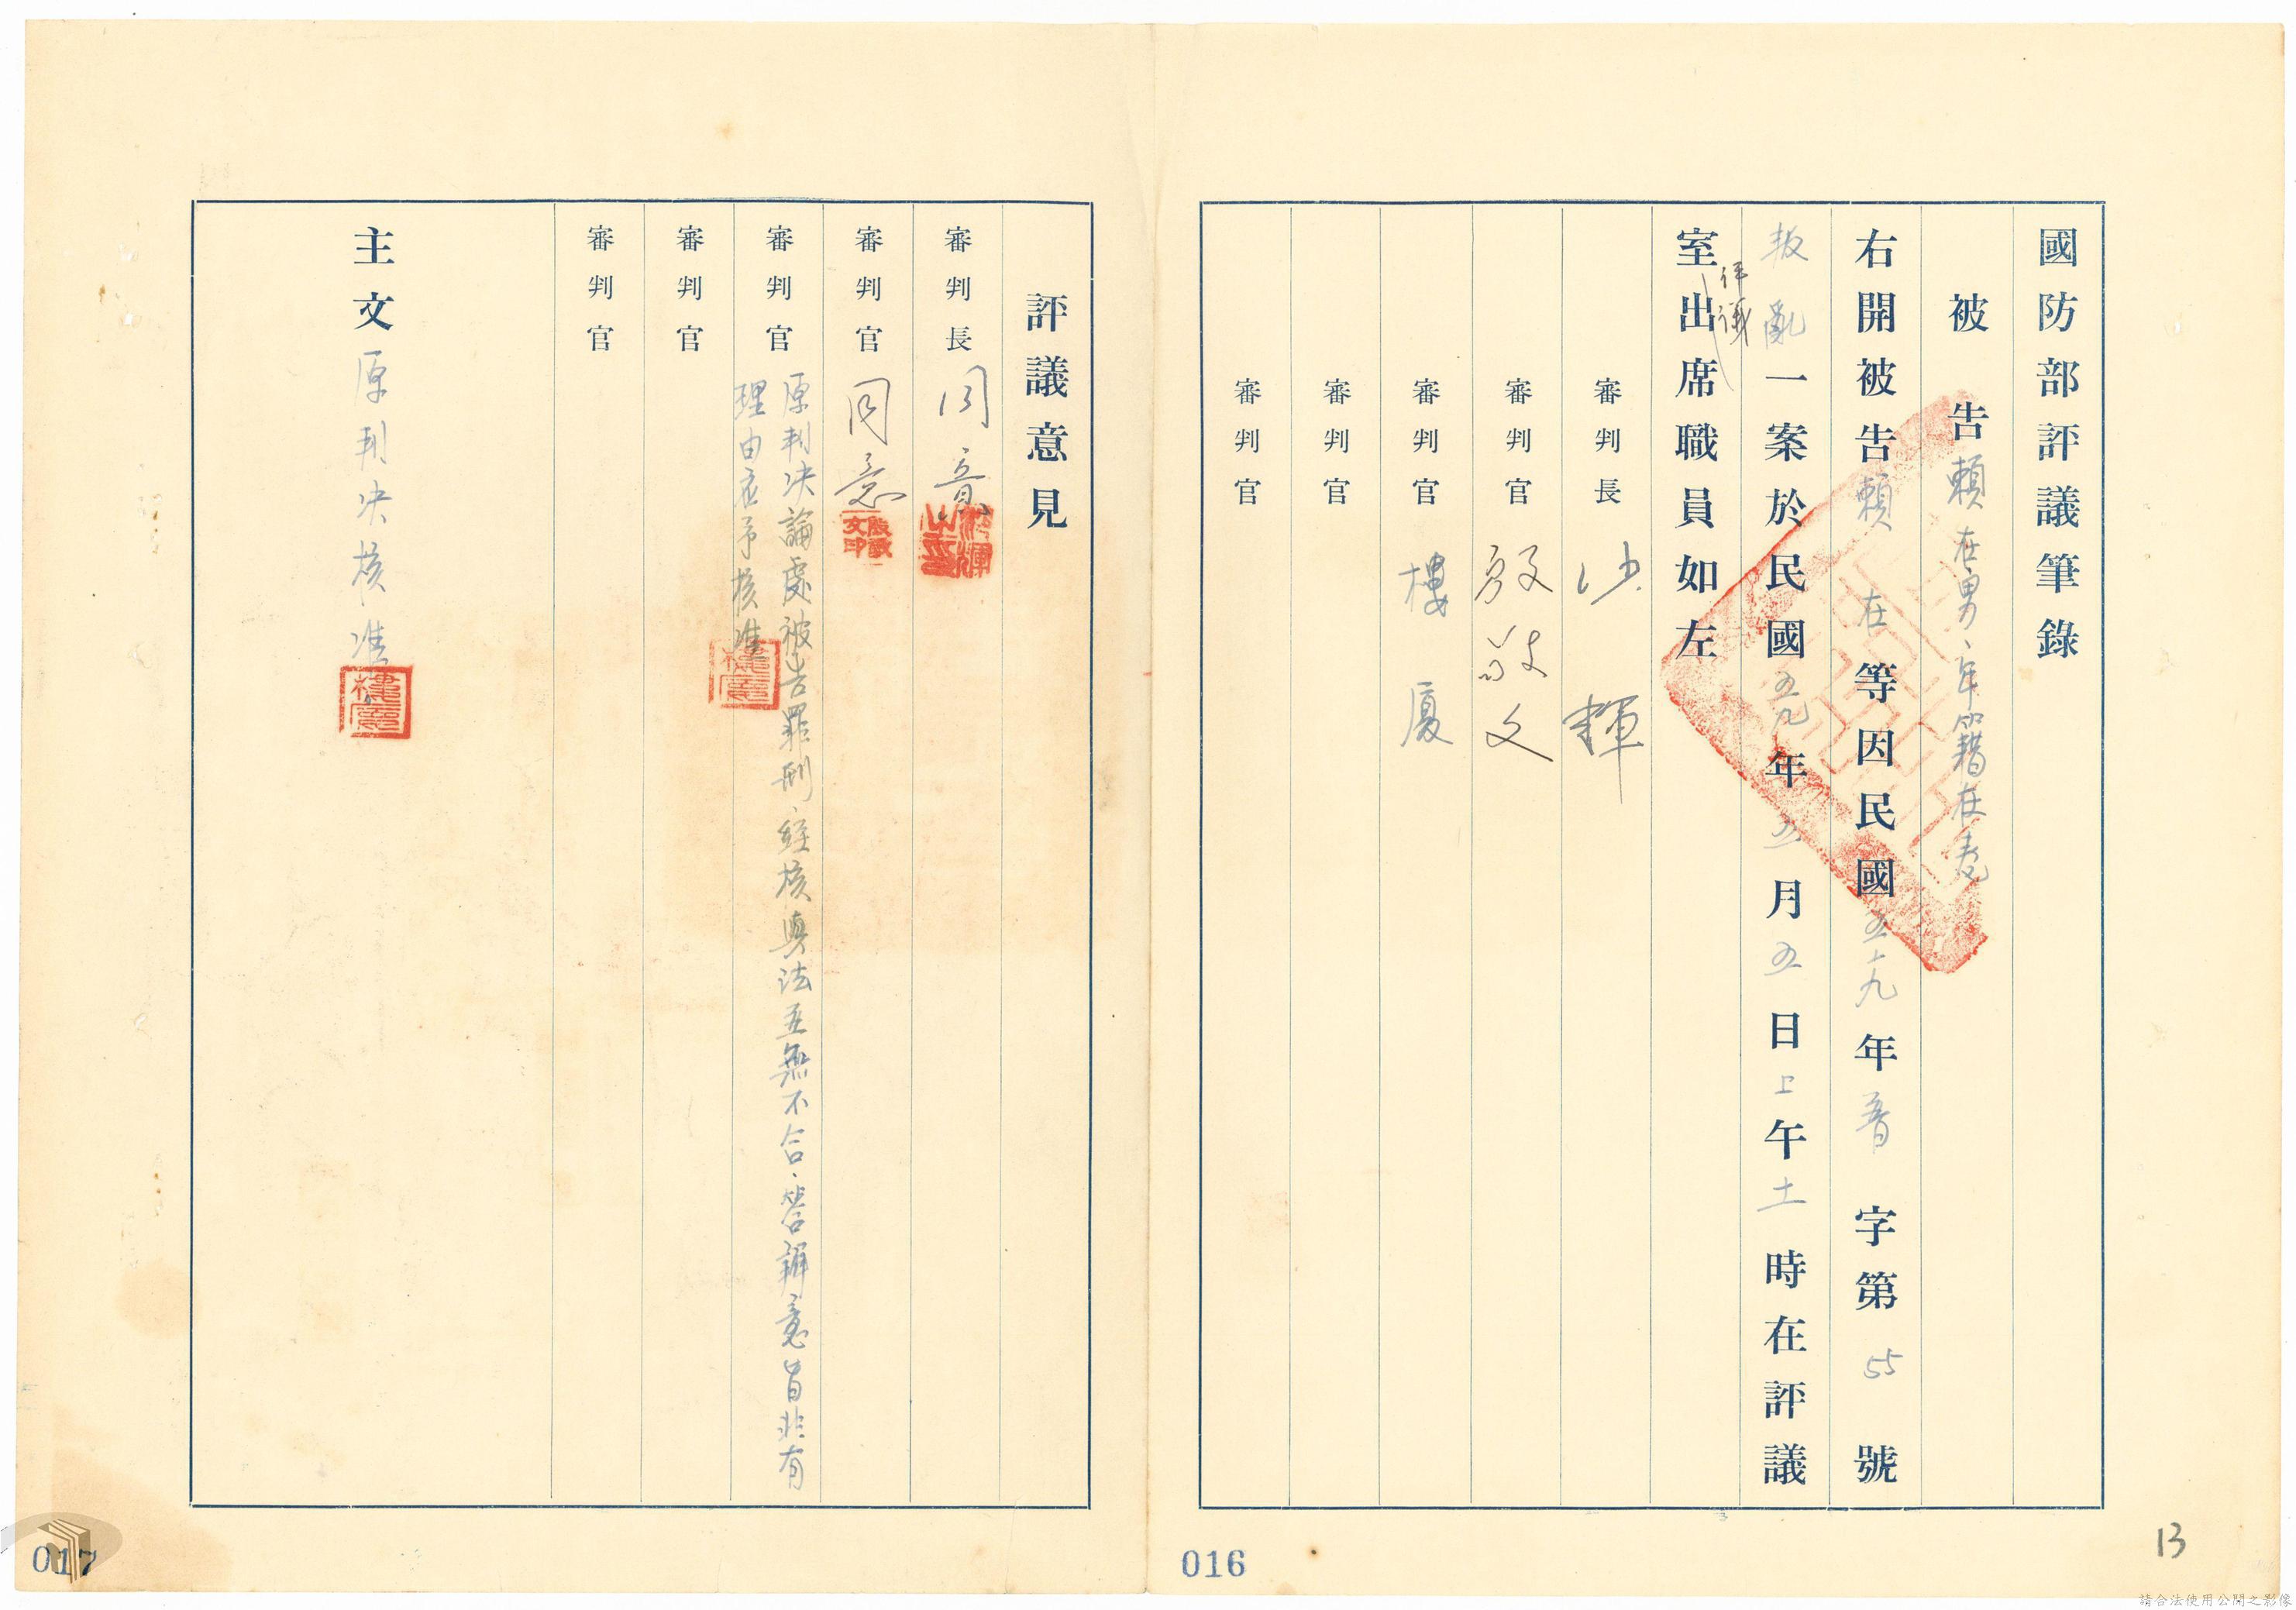 國防部評議筆錄
被告賴在男、年籍在卷
右開被告賴在等因民國五十九年普字第55號
叛亂一案於民國五九年五月五日上午十一時在評議
評議
室出席職員如左
審判長 沙輝
審判官 殷敬文
審判官 樓廈
審判官
審判官
評議意見
審判長 同意
審判官 同意
殷敬文印
審判官 原判決論處被告罪刑、經核與法並無不合、答辯意旨非有
理由應予核准
審判官
審判官
主文 原判決核准
016
017
13
請合法使用公開之影像